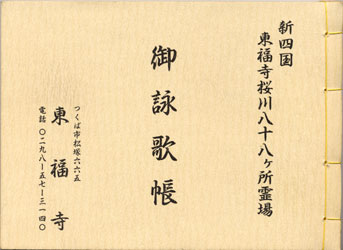 新四国
東福寺桜川八十八ヶ所霊場
御詠歌帳
つくば市松塚六六五
東福寺
電話 〇二九八－五七－三一四〇